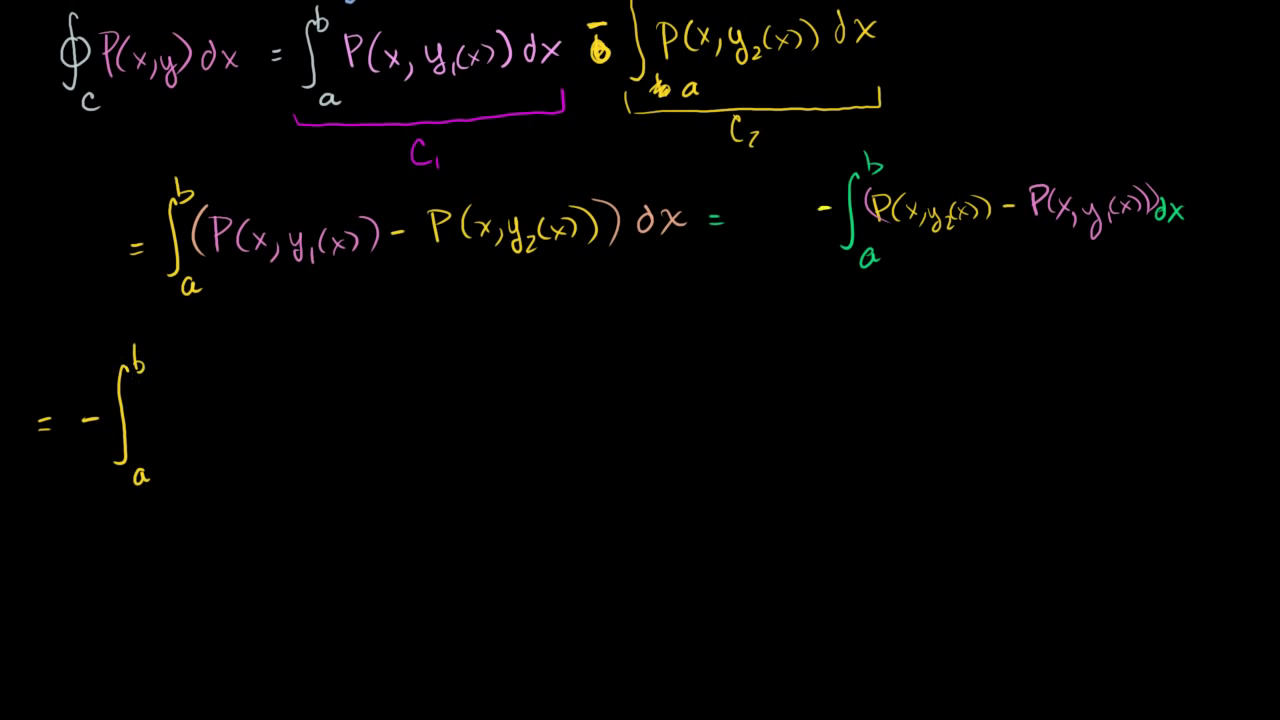 ∮_C P(x,y) dx = ∫_a^b P(x, y₁(x)) dx - ∫_a P(x, y₂(x)) dx
C₁ C₂
= ∫_a^b (P(x, y₁(x)) - P(x, y₂(x))) dx = - ∫_a^b (P(x, y₂(x)) - P(x, y₁(x))) dx
= - ∫_a^b